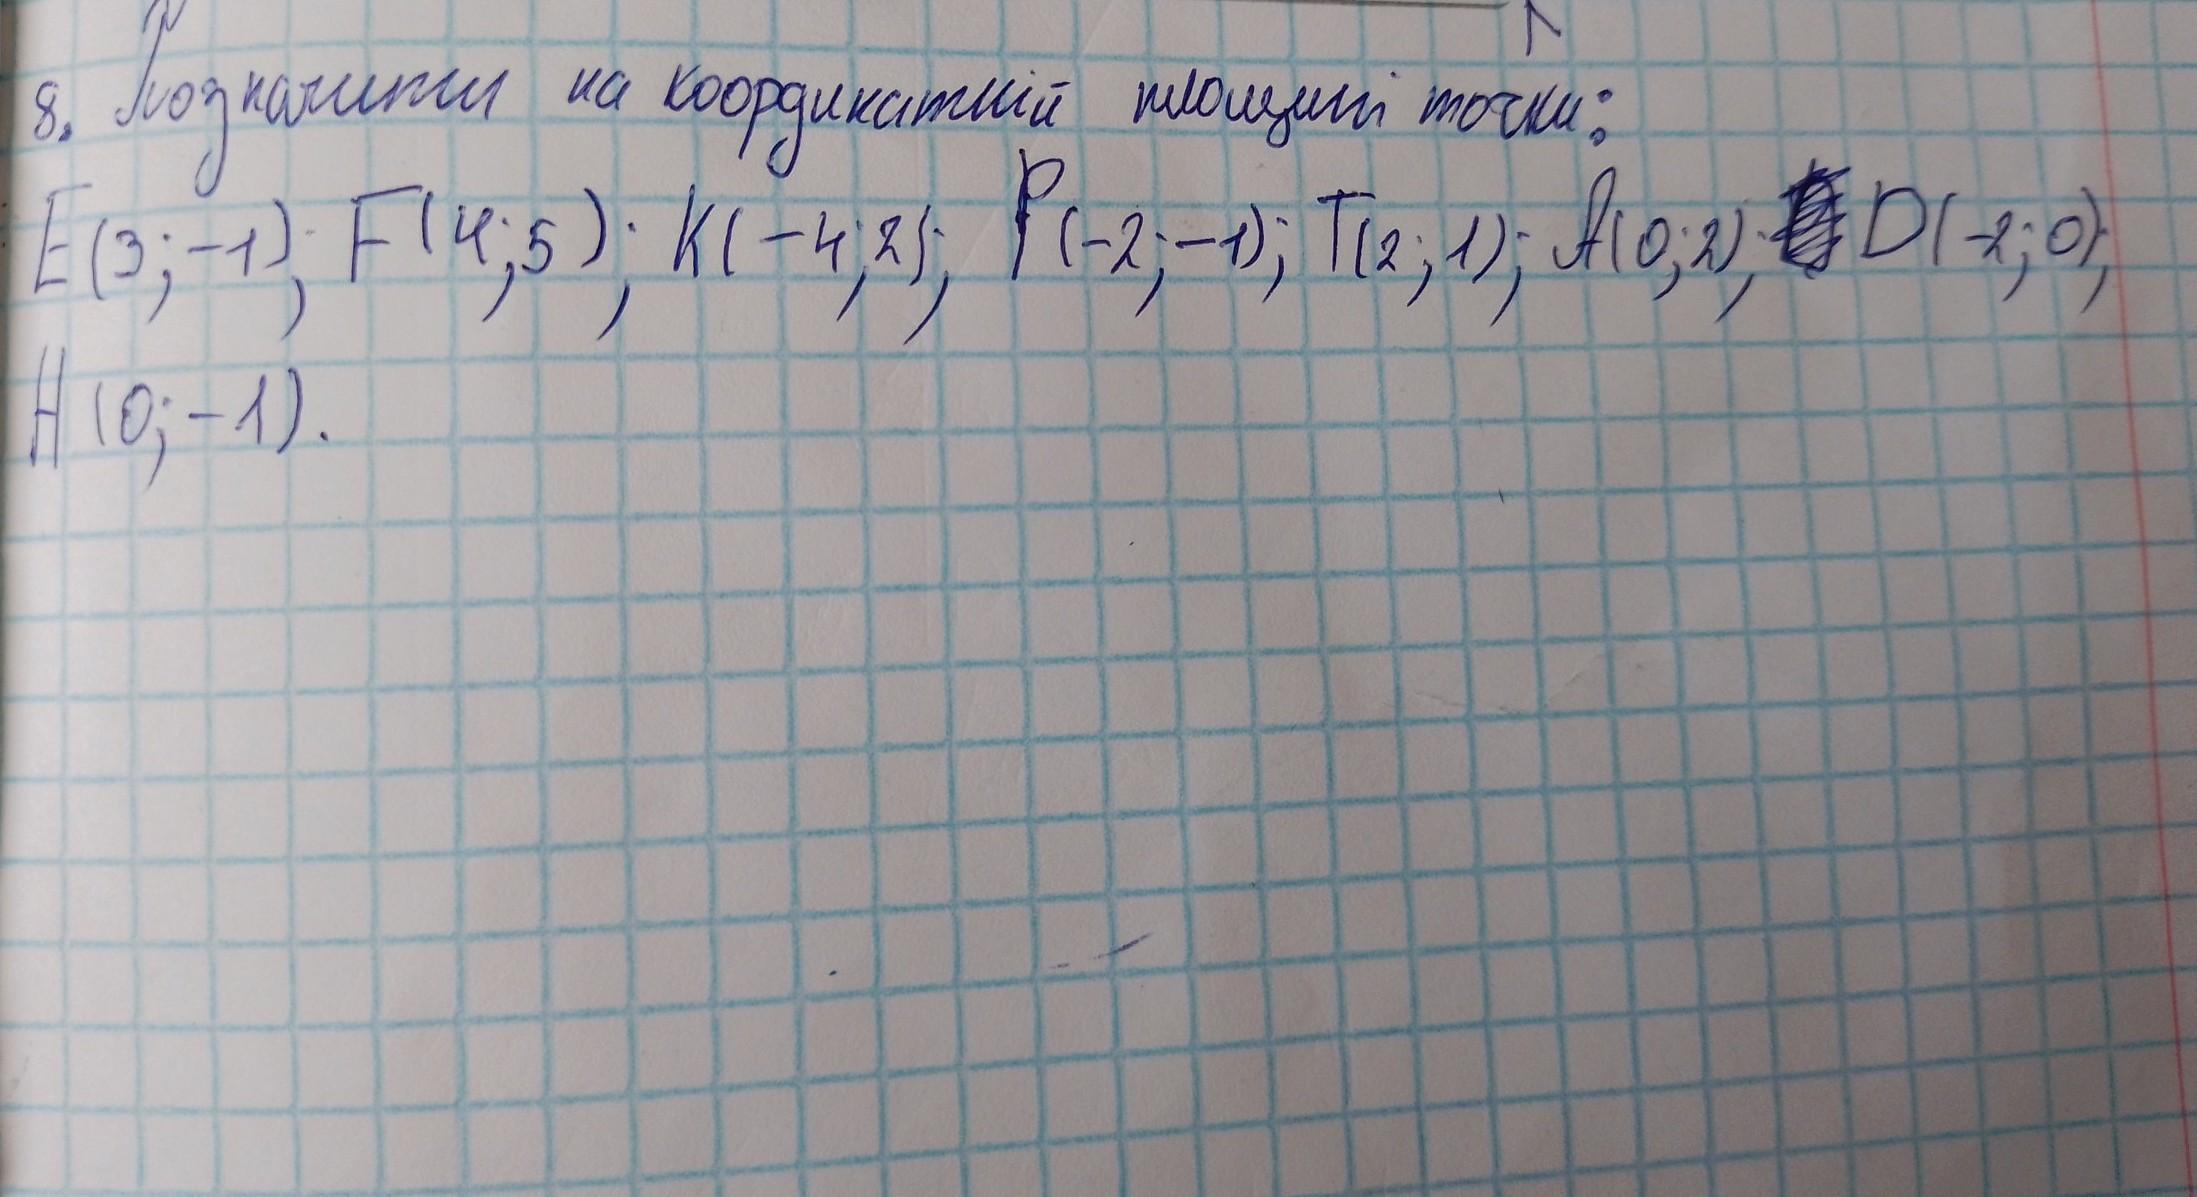 8. Позначити на координатній площині точки:
E(3;-1); F(4;5); K(-4;2); P(-2;-1); T(2;1); A(0;2); D(-2;0);
H(0;-1).